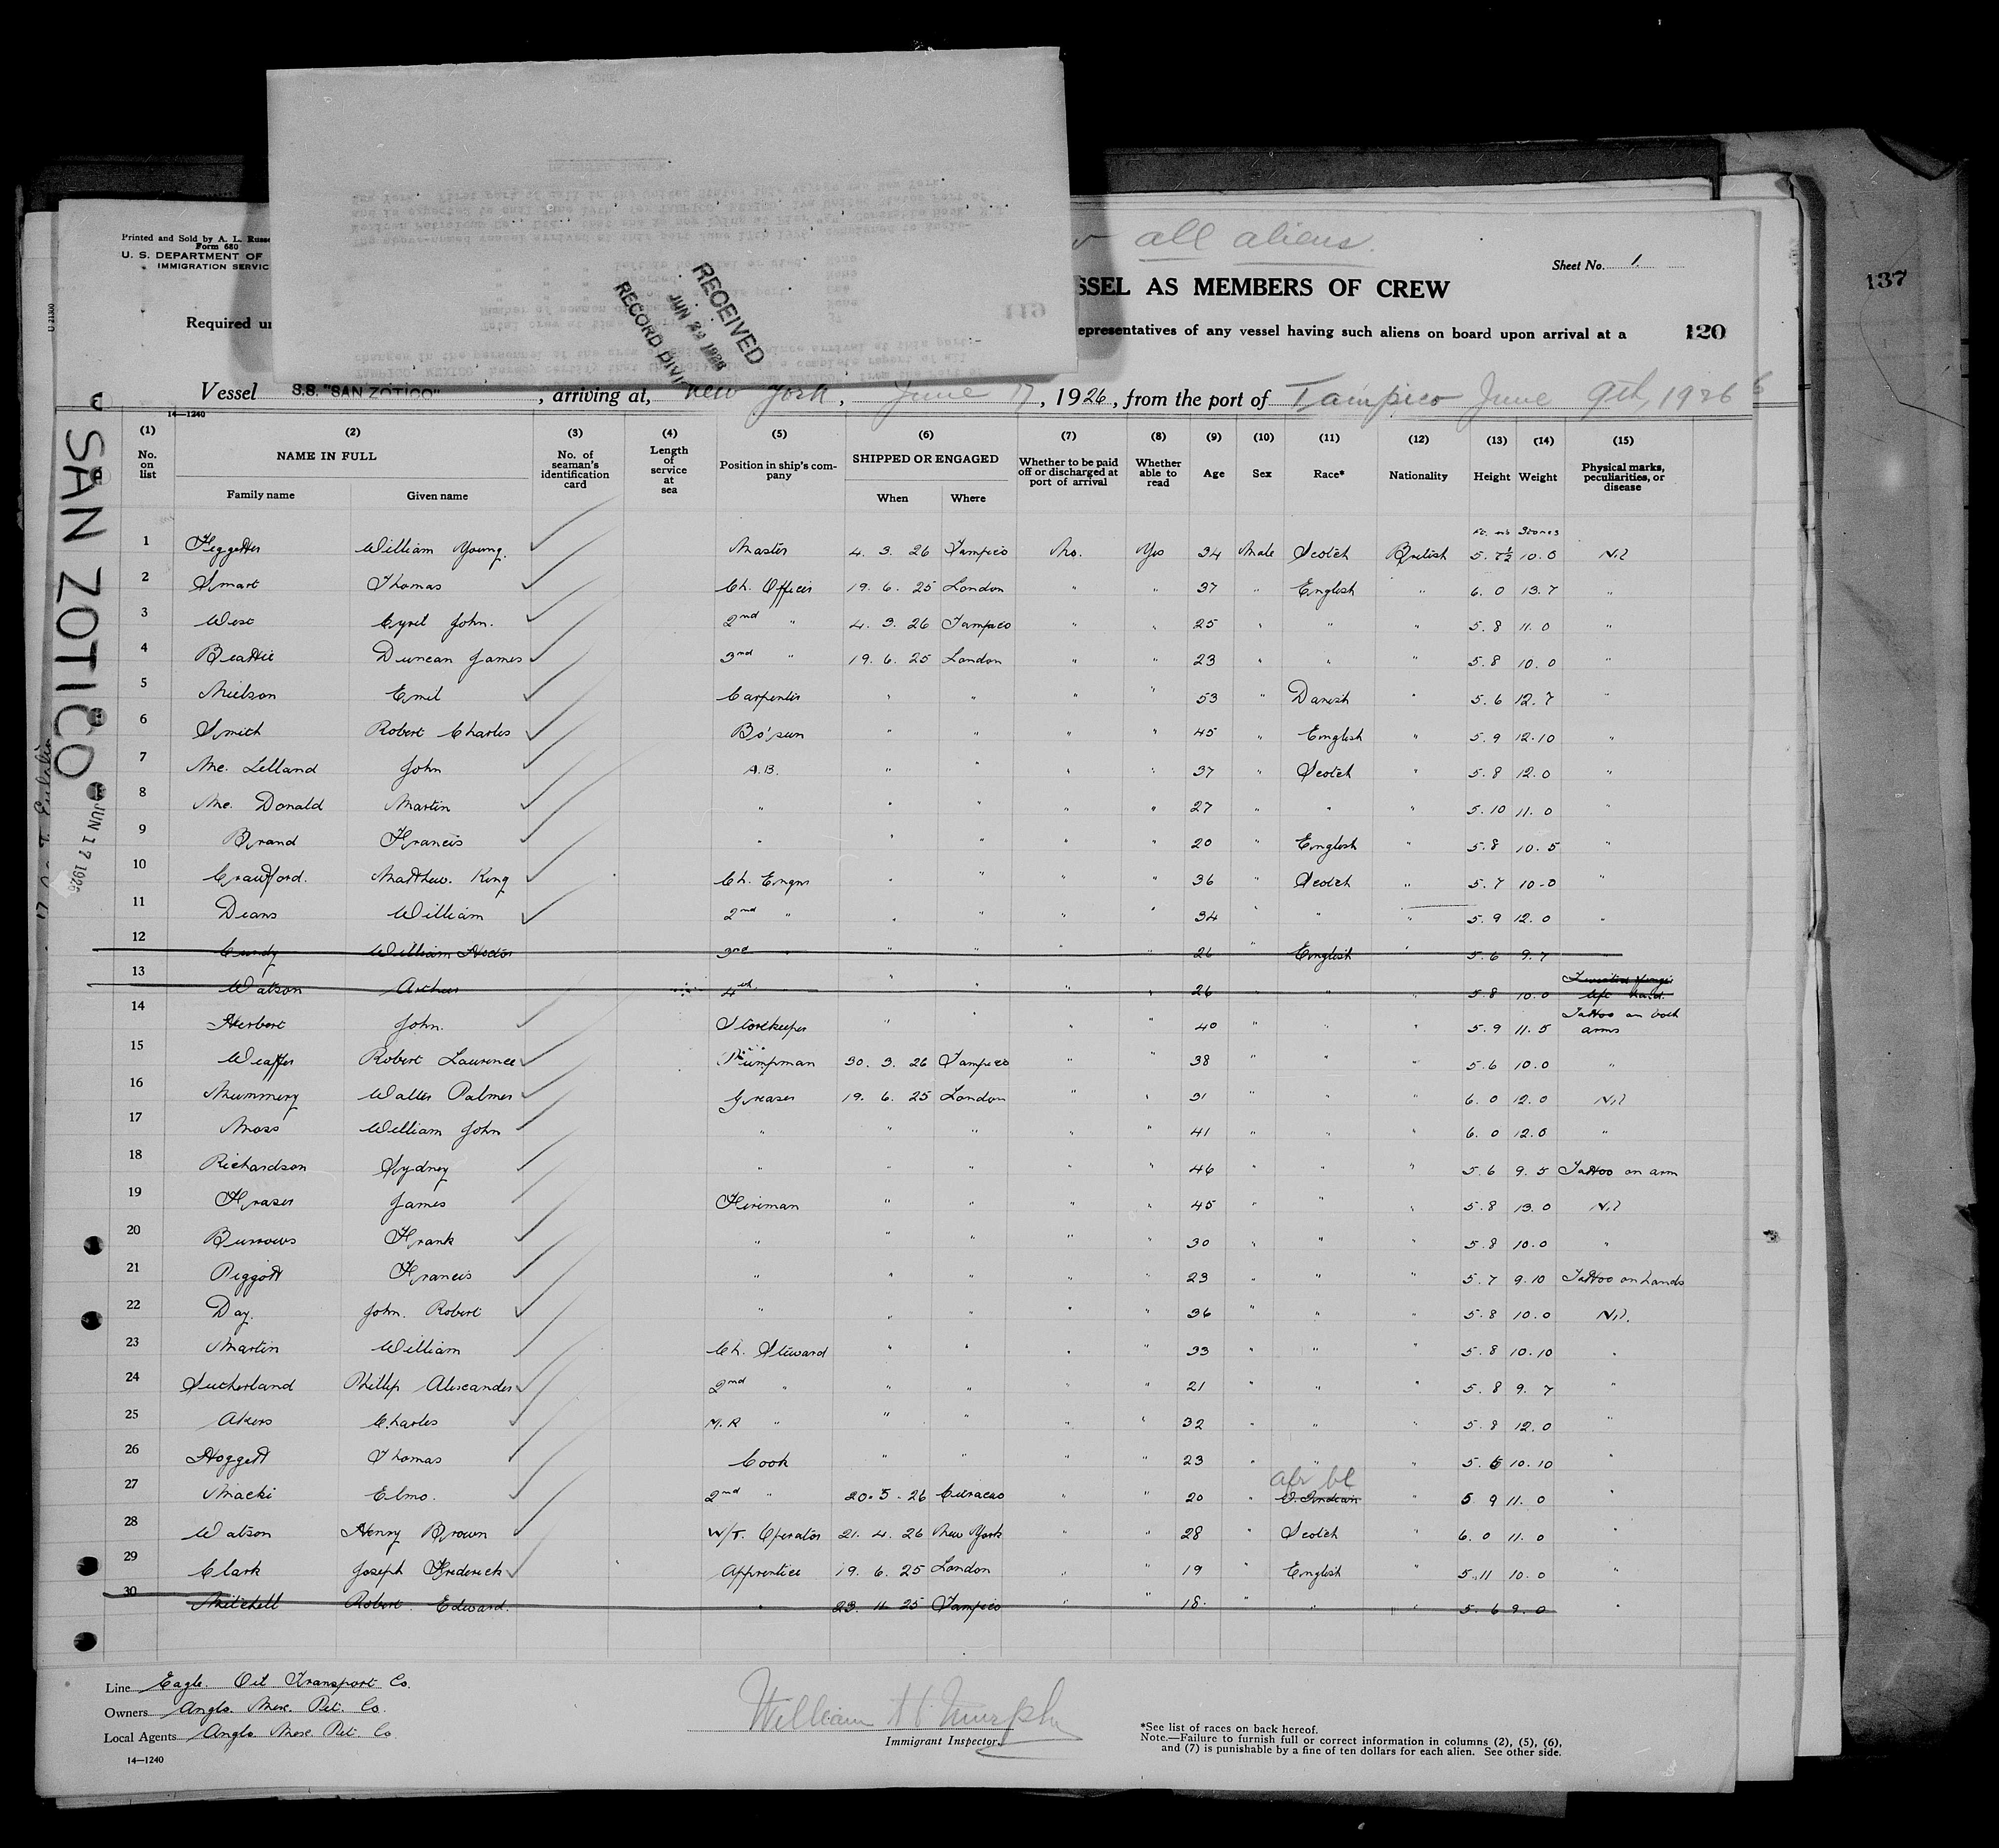 all aliens.
Printed and Sold by A. L. Russe
Form 680
U. S. DEPARTMENT OF
IMMIGRATION SERVIC
Sheet No. 1.
SSEL AS MEMBERS OF CREW
137
Required un
epresentatives of any vessel having such aliens on board upon arrival at a
120
RECEIVED
JUN 22 1926
RECORD DIVI
Vessel S.S. "SAN ZOTICO", arriving at, New York, June 17, 1926, from the port of Tampico June 9th, 1926
14—1240
SAN ZOTICO
JUN 17 1926
(1) (2) (3) (4) (5) (6) (7) (8) (9) (10) (11) (12) (13) (14) (15)
No. on list NAME IN FULL No. of seaman's identification card Length of service at sea Position in ship's company SHIPPED OR ENGAGED Whether to be paid off or discharged at port of arrival Whether able to read Age Sex Race* Nationality Height Weight Physical marks, peculiarities, or disease
Family name Given name When Where
Stones
1 William Young. Master 4. 3. 26 Tampico No. Yes 34 Male Scotch British 5. 7½ 10. 0 Nil
2 Smart Thomas Ch. Officer 19. 6. 25 London " " 37 " English " 6. 0 13. 7 "
3 West Cyril John. 2nd " 4. 3. 26 Tampico " " 25 " " " 5. 8 11. 0 "
4 Beattie Duncan James 3rd " 19. 6. 25 London " " 23 " " " 5. 8 10. 0 "
5 Nielson Emil Carpenter " " " " 53 " Danish " 5. 6 12. 7 "
6 Smith Robert Charles Bo'sun " " " " 45 " English " 5. 9 12. 10 "
7 Mc. Lelland John A.B. " " " " 37 " Scotch " 5. 8 12. 0 "
8 Mc. Donald Martin " " " " " 27 " " " 5. 10 11. 0 "
9 Brand Francis " " " " " 20 " English " 5. 8 10. 5 "
10 Crawford. Matthew. King Ch. Engnr " " " " 36 " Scotch " 5. 7 10-0 "
11 Deans William 2nd " " " " " 34 " " " 5. 9 12. 0 "
12 Cundy William Hector 3rd " " " " " 26 " English " 5. 6 9. 7 "
13 Watson Arthur 4th " " " " " 26 " " " 5. 8 10. 0 left hand.
14 Herbert John. Storekeeper " " " " 40 " " " 5. 9 11. 5 Tattoo on both arms
15 Robert Laurence Pumpman 30. 3. 26 Tampico " " 38 " " " 5. 6 10. 0 "
16 Mummery Walter Palmer Greaser 19. 6. 25 London " " 31 " " " 6. 0 12. 0 Nil
17 Moss William John " " " " " 41 " " " 6. 0 12. 0 "
18 Richardson Sydney " " " " " 46 " " " 5. 6 9. 5 Tattoo on arm
19 Fraser James Fireman " " " " 45 " " " 5. 8 13. 0 Nil
20 Burrows Frank " " " " " 30 " " " 5. 8 10. 0 "
21 Piggott Francis " " " " " 23 " " " 5. 7 9. 10 Tattoo on hands
22 Day. John. Robert " " " " " 36 " " " 5. 8 10. 0 Nil.
23 Martin William Ch. Steward " " " " 33 " " " 5. 8 10. 10 "
24 Sutherland Phillip Alexander 2nd " " " " " 21 " " " 5. 8 9. 7 "
25 Akers Charles M. R " " " " " 32 " " " 5. 8 12. 0 "
26 Hoggett Thomas Cook " " " " 23 " " " 5. 6 10. 10 "
afr bl
27 Macki Elmo. 2nd " 20. 5. 26 Curacao " " 20 " W. Indian " 5 9 11. 0 "
28 Watson Henry Brown W/T. Operator 21. 4. 26 New York " " 28 " Scotch " 6. 0 11. 0 "
29 Clark Joseph Frederick Apprentice 19. 6. 25 London " " 19 " English " 5. 11 10. 0 "
30 Mitchell Robert. Edward. " 23. 11. 25 Tampico " " 18. " " " 5. 6 9. 0 "
Line Eagle. Oil Transport Co.
Owners Anglo. Mex. Pet. Co.
Local Agents Anglo. Mex. Pet. Co
14—1240
William H. Murphy
Immigrant Inspector.
*See list of races on back hereof.
Note.—Failure to furnish full or correct information in columns (2), (5), (6),
and (7) is punishable by a fine of ten dollars for each alien. See other side.